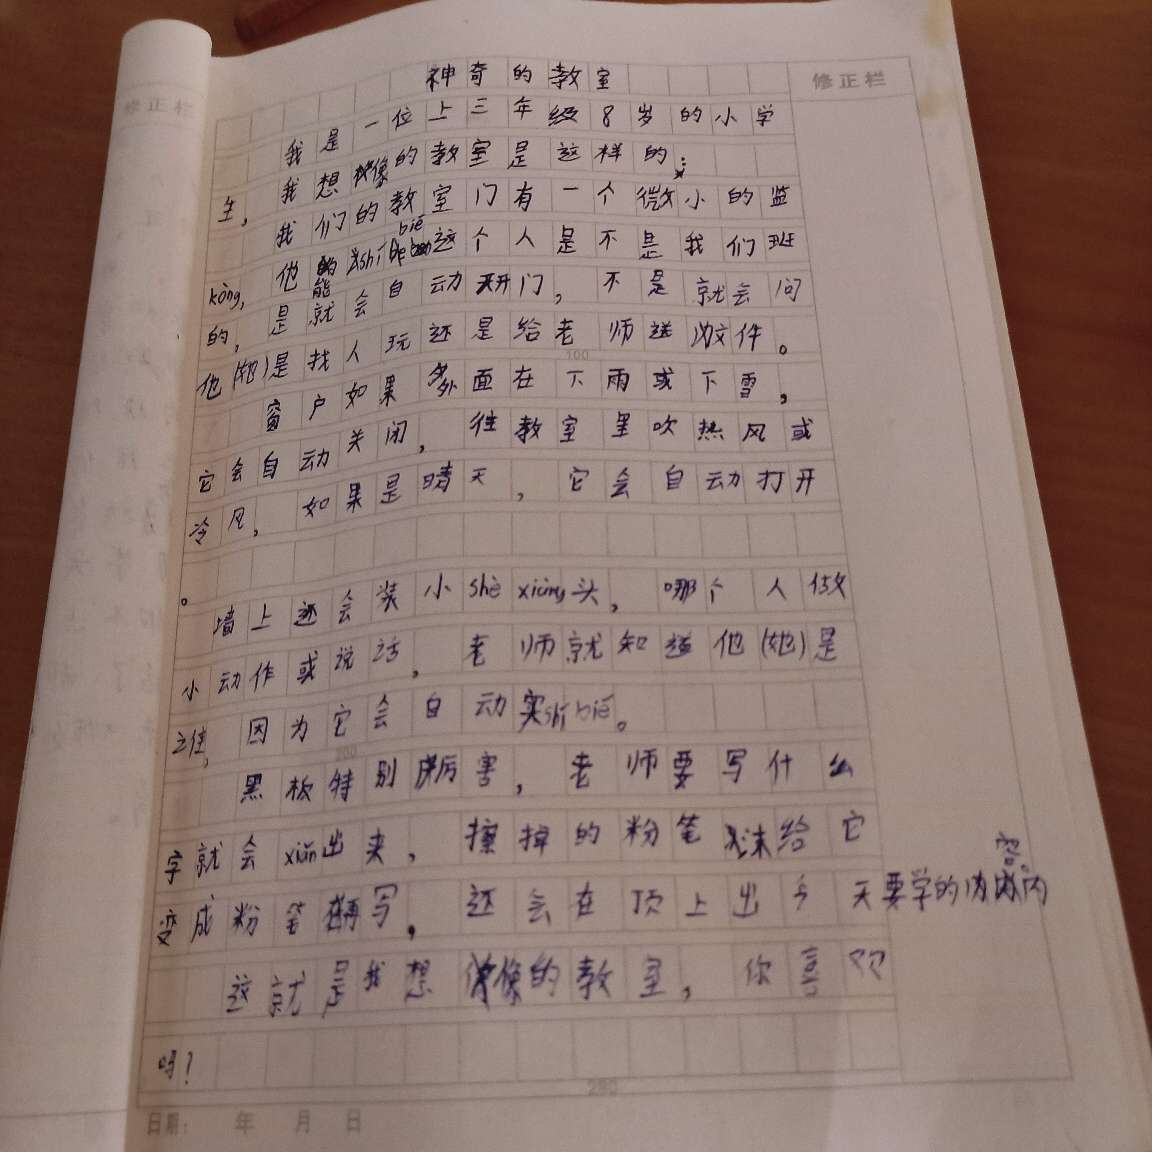 神奇的教室
修正栏
修正栏
我是一位上三年级8岁的小学
生，我想像的教室是这样的：
我们的教室门有一个微小的监
kòng，他能shí bié这个人是不是我们班
的，是就会自动开门，不是就会问
他(她)是找人玩还是给老师送文件。
100
窗户如果外面在下雨或下雪，
它会自动关闭，往教室里吹热风或
冷风，如果是晴天，它会自动打开
。
墙上还会装小shè xiàng头，哪个人做
小动作或说话，老师就知道他(她)是
谁，因为它会自动shí bié。
200
黑板特别厉害，老师要写什么
字就会xiǎn出来，擦掉的粉笔末给它
变成粉笔再写，还会在顶上出今天要学的内
容。
这就是我想像的教室，你喜欢
吗？
280
日期： 年 月 日